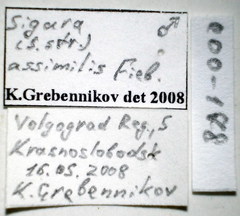 Sigara ♂
(s. str.)
assimilis Fieb.
K.Grebennikov det 2008
Volgograd Reg., S
Krasnoslobodsk
16.05.2008
K. Grebennikov